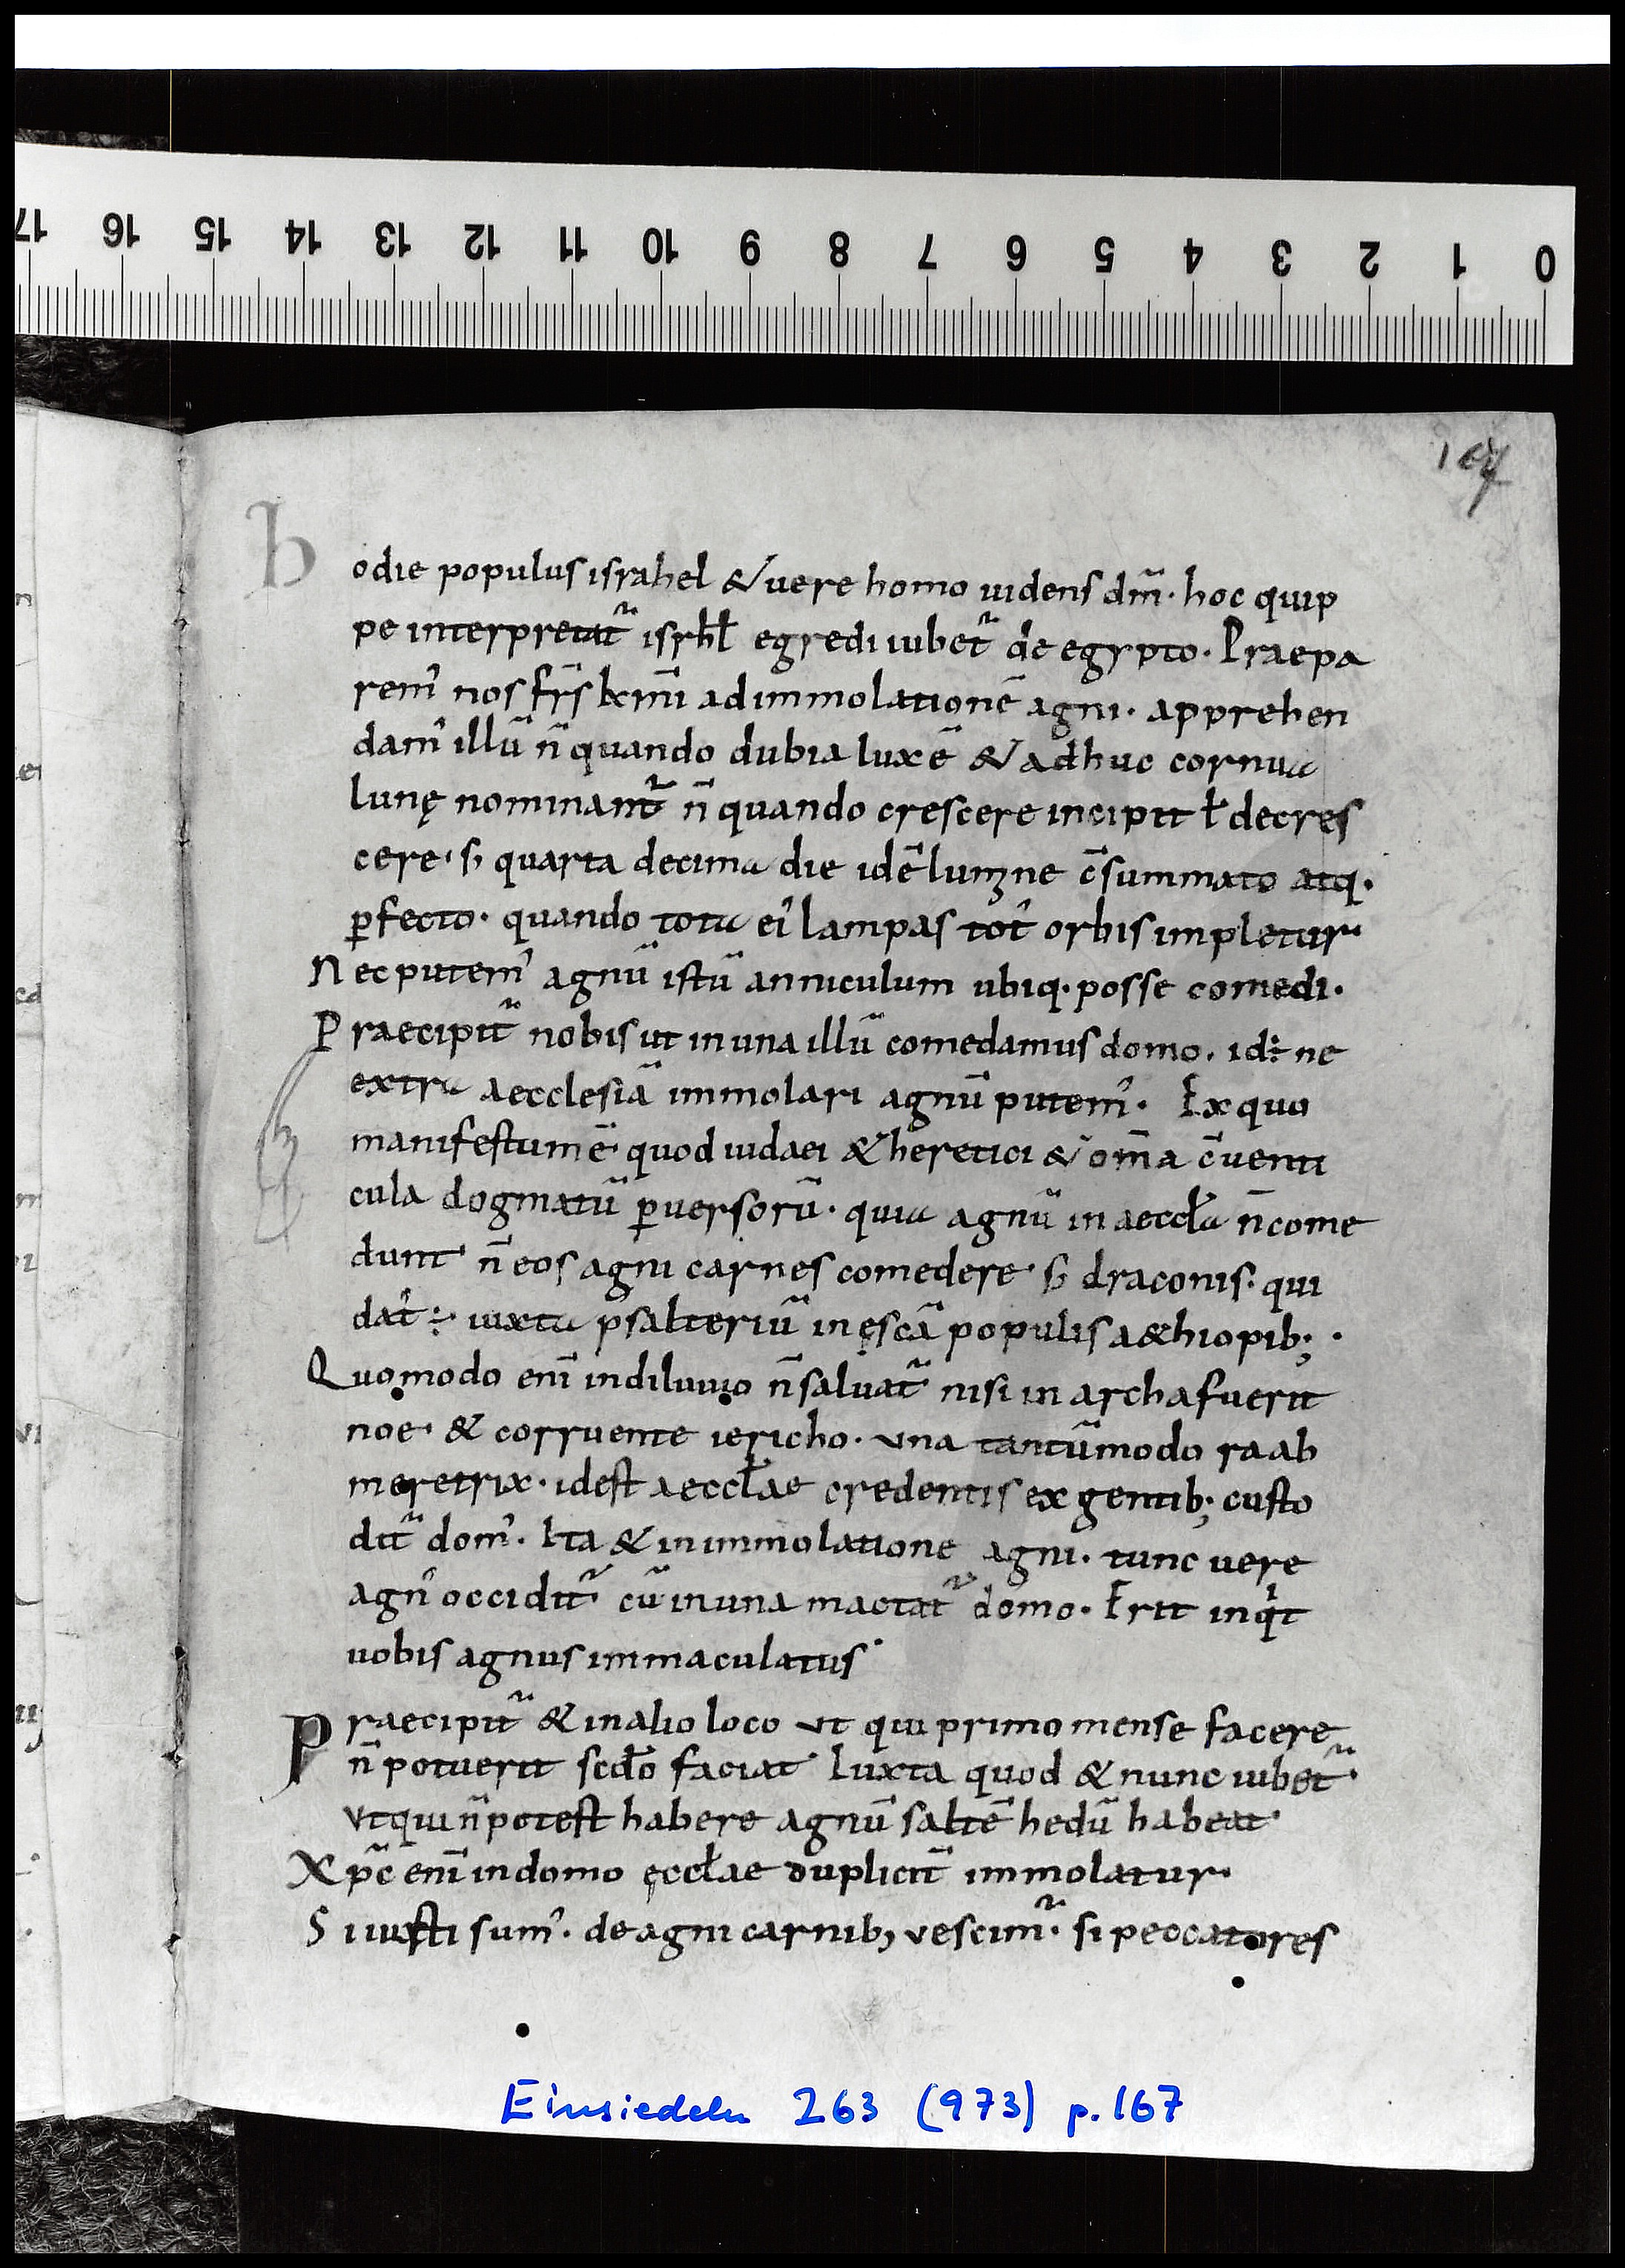 17 16 15 14 13 12 11 10 9 8 7 6 5 4 3 2 1 0
167
hodie populus israhel & uere homo uidens dm̃· hoc quip
pe interpretat̃ isrhł egredi iubet̃ de egypto· Praepa
rem᾽ nos frs̃ kxm̃i ad immolationẽ agni· apprehen
dam᾽ illũ ñ quando dubia lux ẽ & adhuc cornua
lunę nominant̃ ñ quando crescere incipit ł decres
cere· s; quarta decima die idẽ lumine c̃summato atq·
ꝑfecto· quando tota ei᾽ lampas tot᾽ orbis impletur·
Nec putem᾽ agnũ istũ anniculum ubiq· posse comedi·
Praecipit̃ nobis ut in una illũ comedamus domo· id÷ ne
extra aecclesiã immolari agnũ putem᾽· Ex quo
manifestum ẽ· quod iudaei & heretici & om̃a c̃uenti
cula dogmatũ ꝑuersorũ· quia agnũ in aeccła ñ come
dunt· ñ eos agni carnes comedere· s; draconis· qui
dat᾽ ÷ iuxta psalteriũ in escã populis aethiopib;·
Quomodo enĩ in diluuio ñ saluat̃ nisi in archa fuerit
noe· & corruente iericho· una tantũmodo raab
meretrix· idest aeccłae credentis ex gentib; custo
dit̃ dom᾽· Ita & in immolatione agni· tunc uere
agn᾽ occidit̃ cũ in una mactat̃ domo· Erit inqͥt
uobis agnus immaculatus·
Praecipit̃ & in alio loco ut qui primo mense facere
ñ potuerit scdo faciat· Iuxta quod & nunc iubet̃·
Ut qui ñ potest habere agnũ saltẽ hedũ habeat·
Xpc̃ enĩ in domo ęccłae duplicit̃ immolatur·
Si iusti sum᾽· de agni carnib; vescim̃· si peccatores
Einsiedeln 263 (973) p. 167